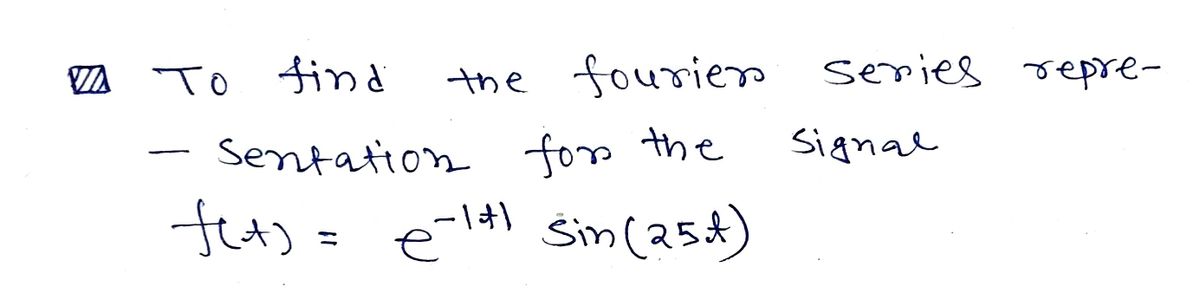 To find the fourier series repre-
- sentation for the signal
f(t) = e^{-|t|} sin(25t)